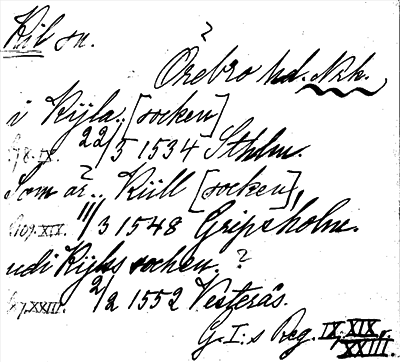 Kil sn.
?
Örebro hd. Nrk.
i Kijla.. [socken]
22/5 1534 Sthlm.
?
Som är.. Kiill [socken],
11/3 1548 Gripsholm.
udi Kijlss sochen. ?
2/2 1552 Vesterås.
G. I:s Reg. IX, XIX, XXIII.